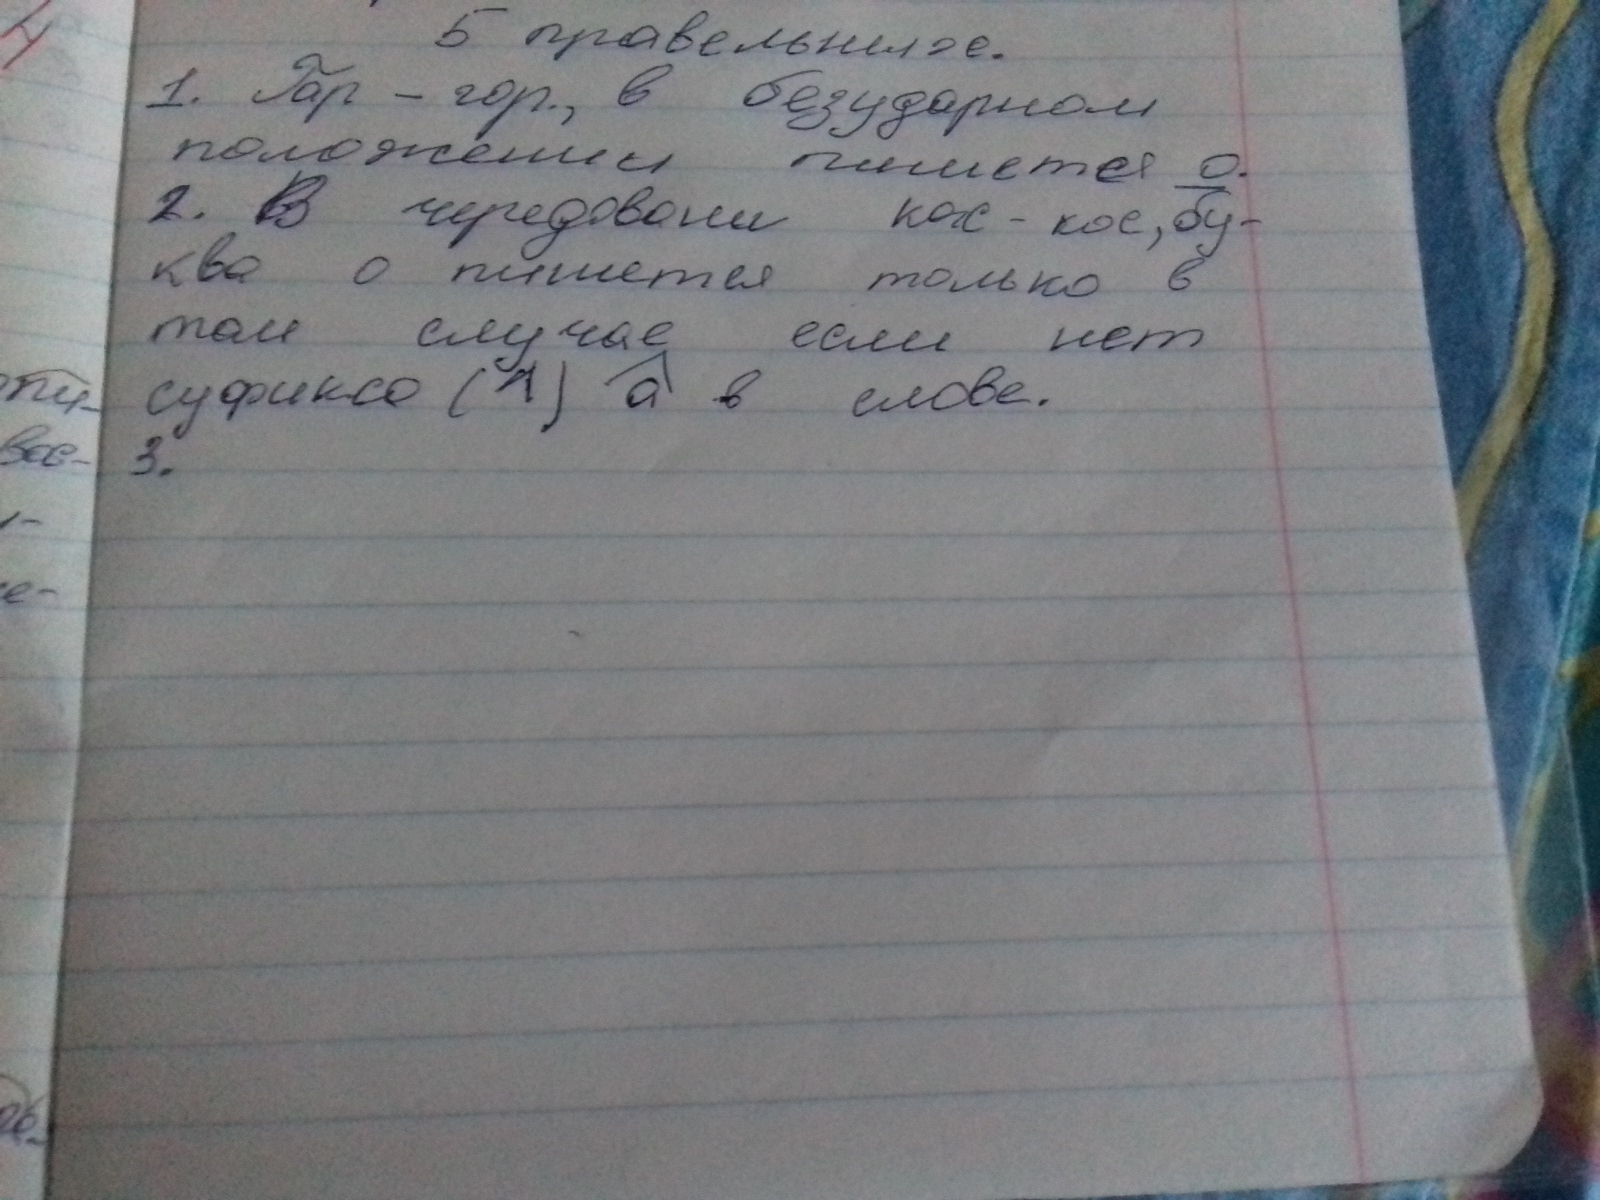 5 правельных.
1. гар-гор, в безударном
положениеи пишется о.
2. В чередовании кас-кос, бу-
ква о пишется только в
том случае если нет
суффикса (^) а в слове.
3.